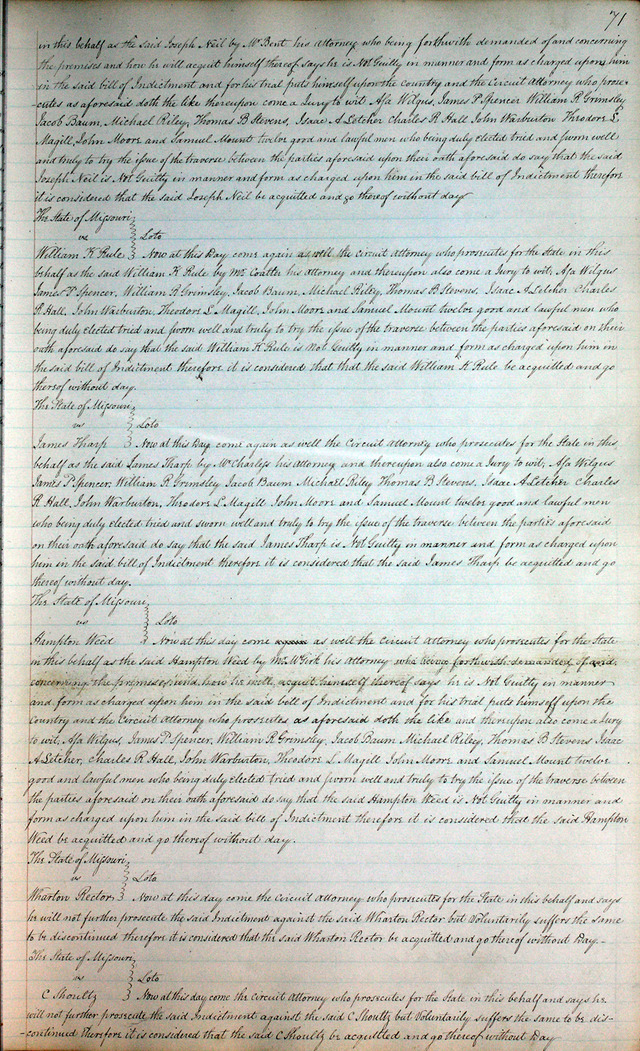 71
in this behalf as the said Joseph Neil by Mr Bent his Attorney who being forthwith demanded of and concerning
the premises and how he will acquit himself thereof says he is Not Guilty in manner and form as charged upon him
in the said bill of Indictment and for his trial puts himself upon the Country and the Circuit Attorney who prose-
cutes as aforesaid doth the like thereupon come a Jury to wit, Asa Wilgus, James P Spencer William R Grimsley
Jacob Baum, Michael Riley, Thomas B Stevens, Isaac A Letcher Charles R Hall John Warburton Theodore L.
Magill, John Moore and Samuel Mount twelve good and lawful men who being duly elected tried and sworn well
and truly to try the issue of the traverse between the parties aforesaid upon their oath aforesaid do say that the said
Joseph Neil is Not Guilty in manner and form as charged upon him in the said bill of Indictment therefore
it is considered that the said Joseph Neil be acquitted and go thereof without day
The State of Missouri
vs } Loto
William K Rule } Now at this Day come again as well the Circuit Attorney who prosecutes for the State in this
behalf as the said William K Rule by Mr Coalter his attorney and thereupon also come a Jury to wit, Asa Wilgus
James P Spencer, William R Grimsley, Jacob Baum, Michael Riley, Thomas B Stevens, Isaac A Letcher Charles
R Hall, John Warburton, Theodore L. Magill, John Moore and Samuel Mount twelve good and lawful men who
being duly elected tried and sworn well and truly to try the issue of the traverse between the parties aforesaid on their
oath aforesaid do say that the said William K Rule is Not Guilty in manner and form as charged upon him in
the said bill of Indictment therefore it is considered that that the said William K Rule be acquitted and go
thereof without day.
The State of Missouri
vs } Loto
James Tharp } Now at this Day come again as well the Circuit Attorney who prosecutes for the State in this
behalf as the said James Tharp by Mr Charless his Attorney and thereupon also come a Jury to wit, Asa Wilgus
James P Spencer, William R Grimsley Jacob Baum Michael Riley Thomas B Stevens, Isaac A Letcher Charles
R Hall, John Warburton, Theodore L Magill John Moore and Samuel Mount twelve good and lawful men
who being duly elected tried and sworn well and truly to try the issue of the traverse between the parties aforesaid
on their oath aforesaid do say that the said James Tharp is Not Guilty in manner and form as charged upon
him in the said bill of Indictment therefore it is considered that the said James Tharp be acquitted and go
thereof without day.
The State of Missouri
vs } Loto
Hampton Weed } Now at this day come again as well the Circuit Attorney who prosecutes for the State
in this behalf as the said Hampton Weed by Mr McGirk his Attorney who being forthwith demanded of and
concerning the premises and how he will acquit himself thereof says he is Not Guilty in manner
and form as charged upon him in the said bill of Indictment and for his trial puts himself upon the
Country and the Circuit Attorney who prosecutes as aforesaid doth the like and thereupon also come a Jury
to wit, Asa Wilgus, James P. Spencer, William R. Grimsley, Jacob Baum Michael Riley, Thomas B Stevens Isaac
A Letcher, Charles R Hall, John Warburton, Theodore L. Magill John Moore and Samuel Mount twelve
good and lawful men who being duly elected tried and sworn well and truly to try the issue of the traverse between
the parties aforesaid on their oath aforesaid do say that the said Hampton Weed is Not Guilty in manner and
form as charged upon him in the said bill of Indictment therefore it is considered that the said Hampton
Weed be acquitted and go thereof without day.
The State of Missouri
vs } Loto
Wharton Rector } Now at this day come the Circuit Attorney who prosecutes for the State in this behalf and says
he will not further prosecute the said Indictment against the said Wharton Rector but Voluntarily suffers the same
to be discontinued therefore it is considered that the said Wharton Rector be acquitted and go thereof without Day.-
The State of Missouri
vs } Loto
C Shoultz } Now at this day come the Circuit Attorney who prosecutes for the State in this behalf and says he
will not further prosecute the said Indictment against the said C Shoultz but Voluntarily suffers the same to be dis-
-continued therefore it is considered that the said C Shoultz be acquitted and go thereof without Day